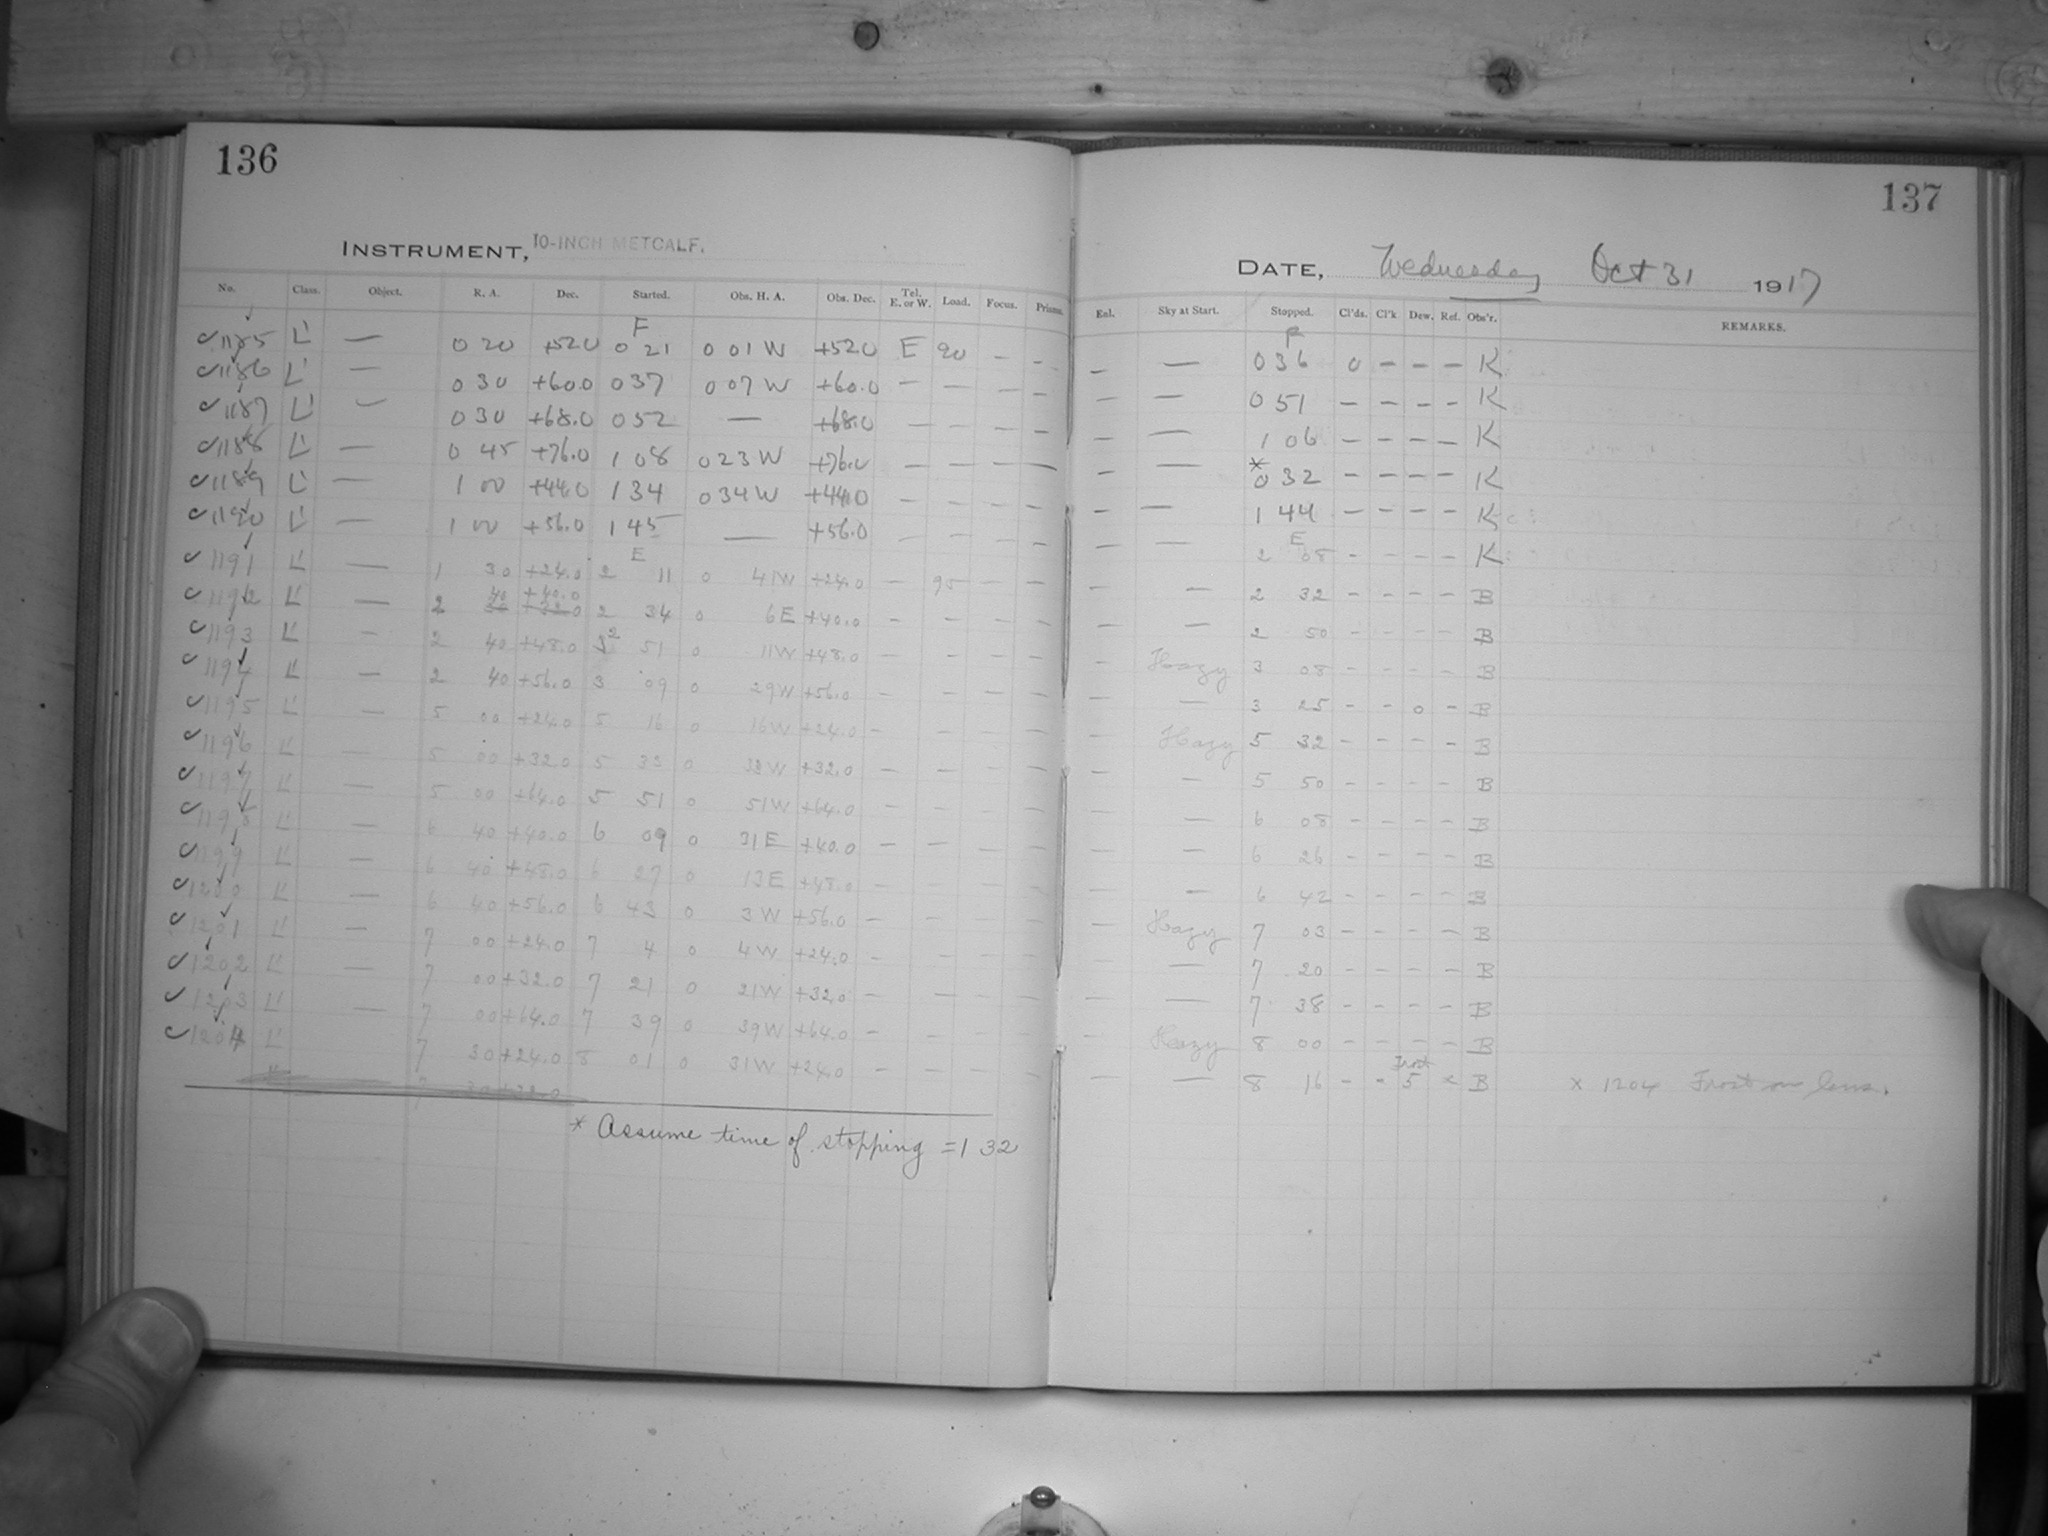 136
INSTRUMENT, 10-INCH METCALF.
No. Class. Object. R. A. Dec. Started. Obs. H. A. Obs. Dec. Tel. E. or W. Load. Focus. Prisms.
F
1185 L' — 0 20 +52.0 0 21 0 01 W +52.0 E 90 - -
1186 L' — 0 30 +60.0 0 37 0 07 W +60.0 — — — —
1187 L' — 0 30 +68.0 0 52 — +68.0 — — — —
1188 L' — 0 45 +76.0 1 08 0 23 W +76.0 — — — —
1189 L' — 1 00 +44.0 1 34 0 34 W +44.0 — — — —
1190 L' — 1 00 +56.0 1 45 — +56.0 — — — —
E
1191 L' — 1 30 +24.0 2 11 0 41W +24.0 — 95 — —
40 +40.0
1192 L' — 2 30 +32.0 2 34 0 6E +40.0 — — — —
1193 L' — 2 40 +48.0 2 51 0 11W +48.0 — — — —
1194 L' — 2 40 +56.0 3 09 0 29W +56.0 — — — —
1195 L' — 5 00 +24.0 5 16 0 16W +24.0 — — — —
1196 L' — 5 00 +32.0 5 33 0 33W +32.0 — — — —
1197 L' — 5 00 +64.0 5 51 0 51W +64.0 — — — —
1198 L' — 6 40 +40.0 6 09 0 31E +40.0 — — — —
1199 L' — 6 40 +48.0 6 27 0 13E +48.0 — — — —
1200 L' — 6 40 +56.0 6 43 0 3W +56.0 — — — —
1201 L' — 7 00 +24.0 7 4 0 4W +24.0 — — — —
1202 L' — 7 00 +32.0 7 21 0 21W +32.0 — — — —
1203 L' — 7 00 +64.0 7 39 0 39W +64.0 — — — —
1204 L' 7 30 +24.0 8 01 0 31W +24.0 — — — —
* Assume time of stopping = 1 32
137
DATE, Wednesday Oct 31 1917
Enl. Sky at Start. Stopped. Cl'ds. Cl'k Dew. Ref. Obs'r. REMARKS.
F
— — 0 36 0 — — — K
— — 0 51 — — — — K
— — 1 06 — — — — K
— — * 0 32 — — — — K
— — 1 44 — — — — K
E
— — 2 08 — — — — K
— 2 32 — — — — B
— — 2 50 — — — — B
— Hazy 3 08 — — — — B
— — 3 25 — — 0 — B
— Hazy 5 32 — — — — B
— — 5 50 — — — — B
— — 6 08 — — — — B
— — 6 26 — — — — B
— — 6 42 — — — — B
— Hazy 7 03 — — — — B
— — 7 20 — — — — B
— — 7 38 — — — — B
— Hazy 8 00 — — — — B
Frost
— — 8 16 — — 5 x B x 1204 Frost on lens.